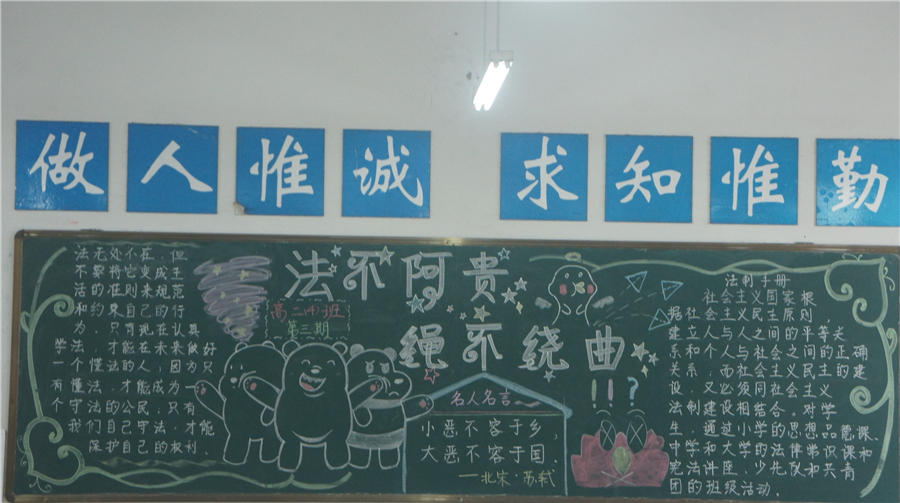 做人惟诚 求知惟勤
法不阿贵
绳不绕曲
高二(4)班
第三期
法无处不在,但
不要将它变成生
活的准则来规范
和约束自己的行
为,只有现在认真
学法,才能在未来做好
一个懂法的人,因为只
有懂法,才能成为一
个守法的公民,只有
我们自己守法,才能
保护自己的权利.
名人名言
小恶不容于乡,
大恶不容于国
——北宋·苏轼
!!?
法制手册
社会主义国家根
据社会主义民主原则,
建立人与人之间的平等关
系和个人与社会之间的正确
关系,而社会主义民主的建
设,又必须同社会主义
法制建设相结合。对学
生,通过小学的思想品德课、
中学和大学的法律常识课和
宪法讲座、少先队和共青
团的班级活动。